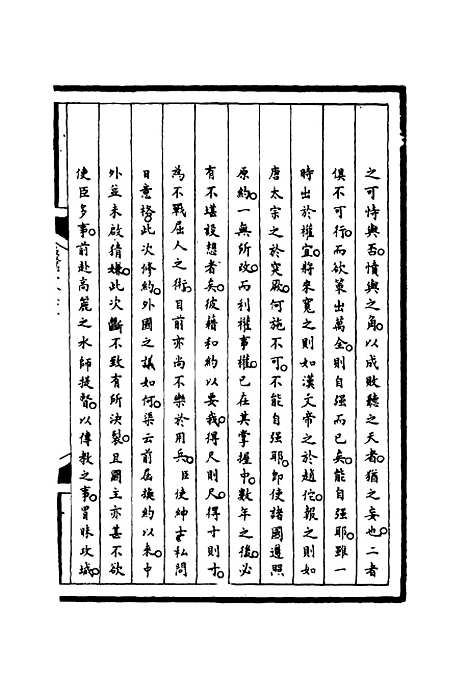 之可恃與否。憤與之角。以成敗聽之天者。猶之妄也。二者
俱不可行。而欲策出萬全。則自强而已矣。能自强耶。雖一
時出於權宜。將來寬之則如漢文帝之於趙佗。報之則如
唐太宗之於突厥。何施不可。不能自强耶。卽使諸國遵照
原約。一無所改。而利權事權。已在其掌握中。數年之後。必
有不堪設想者矣。彼藉和約以要我。得尺則尺。得寸則寸。
為不戰屈人之術。目前亦尚不樂於用兵。臣使紳士私問
日意格。此次修約。外國之議如何。渠云前屆換約以來。中
外並未啟猜嫌。此次斷不致有所決裂。且國主亦甚不欲
使臣多事。前赴高麗之水師提督。以傳教之事。冒昧攻城。